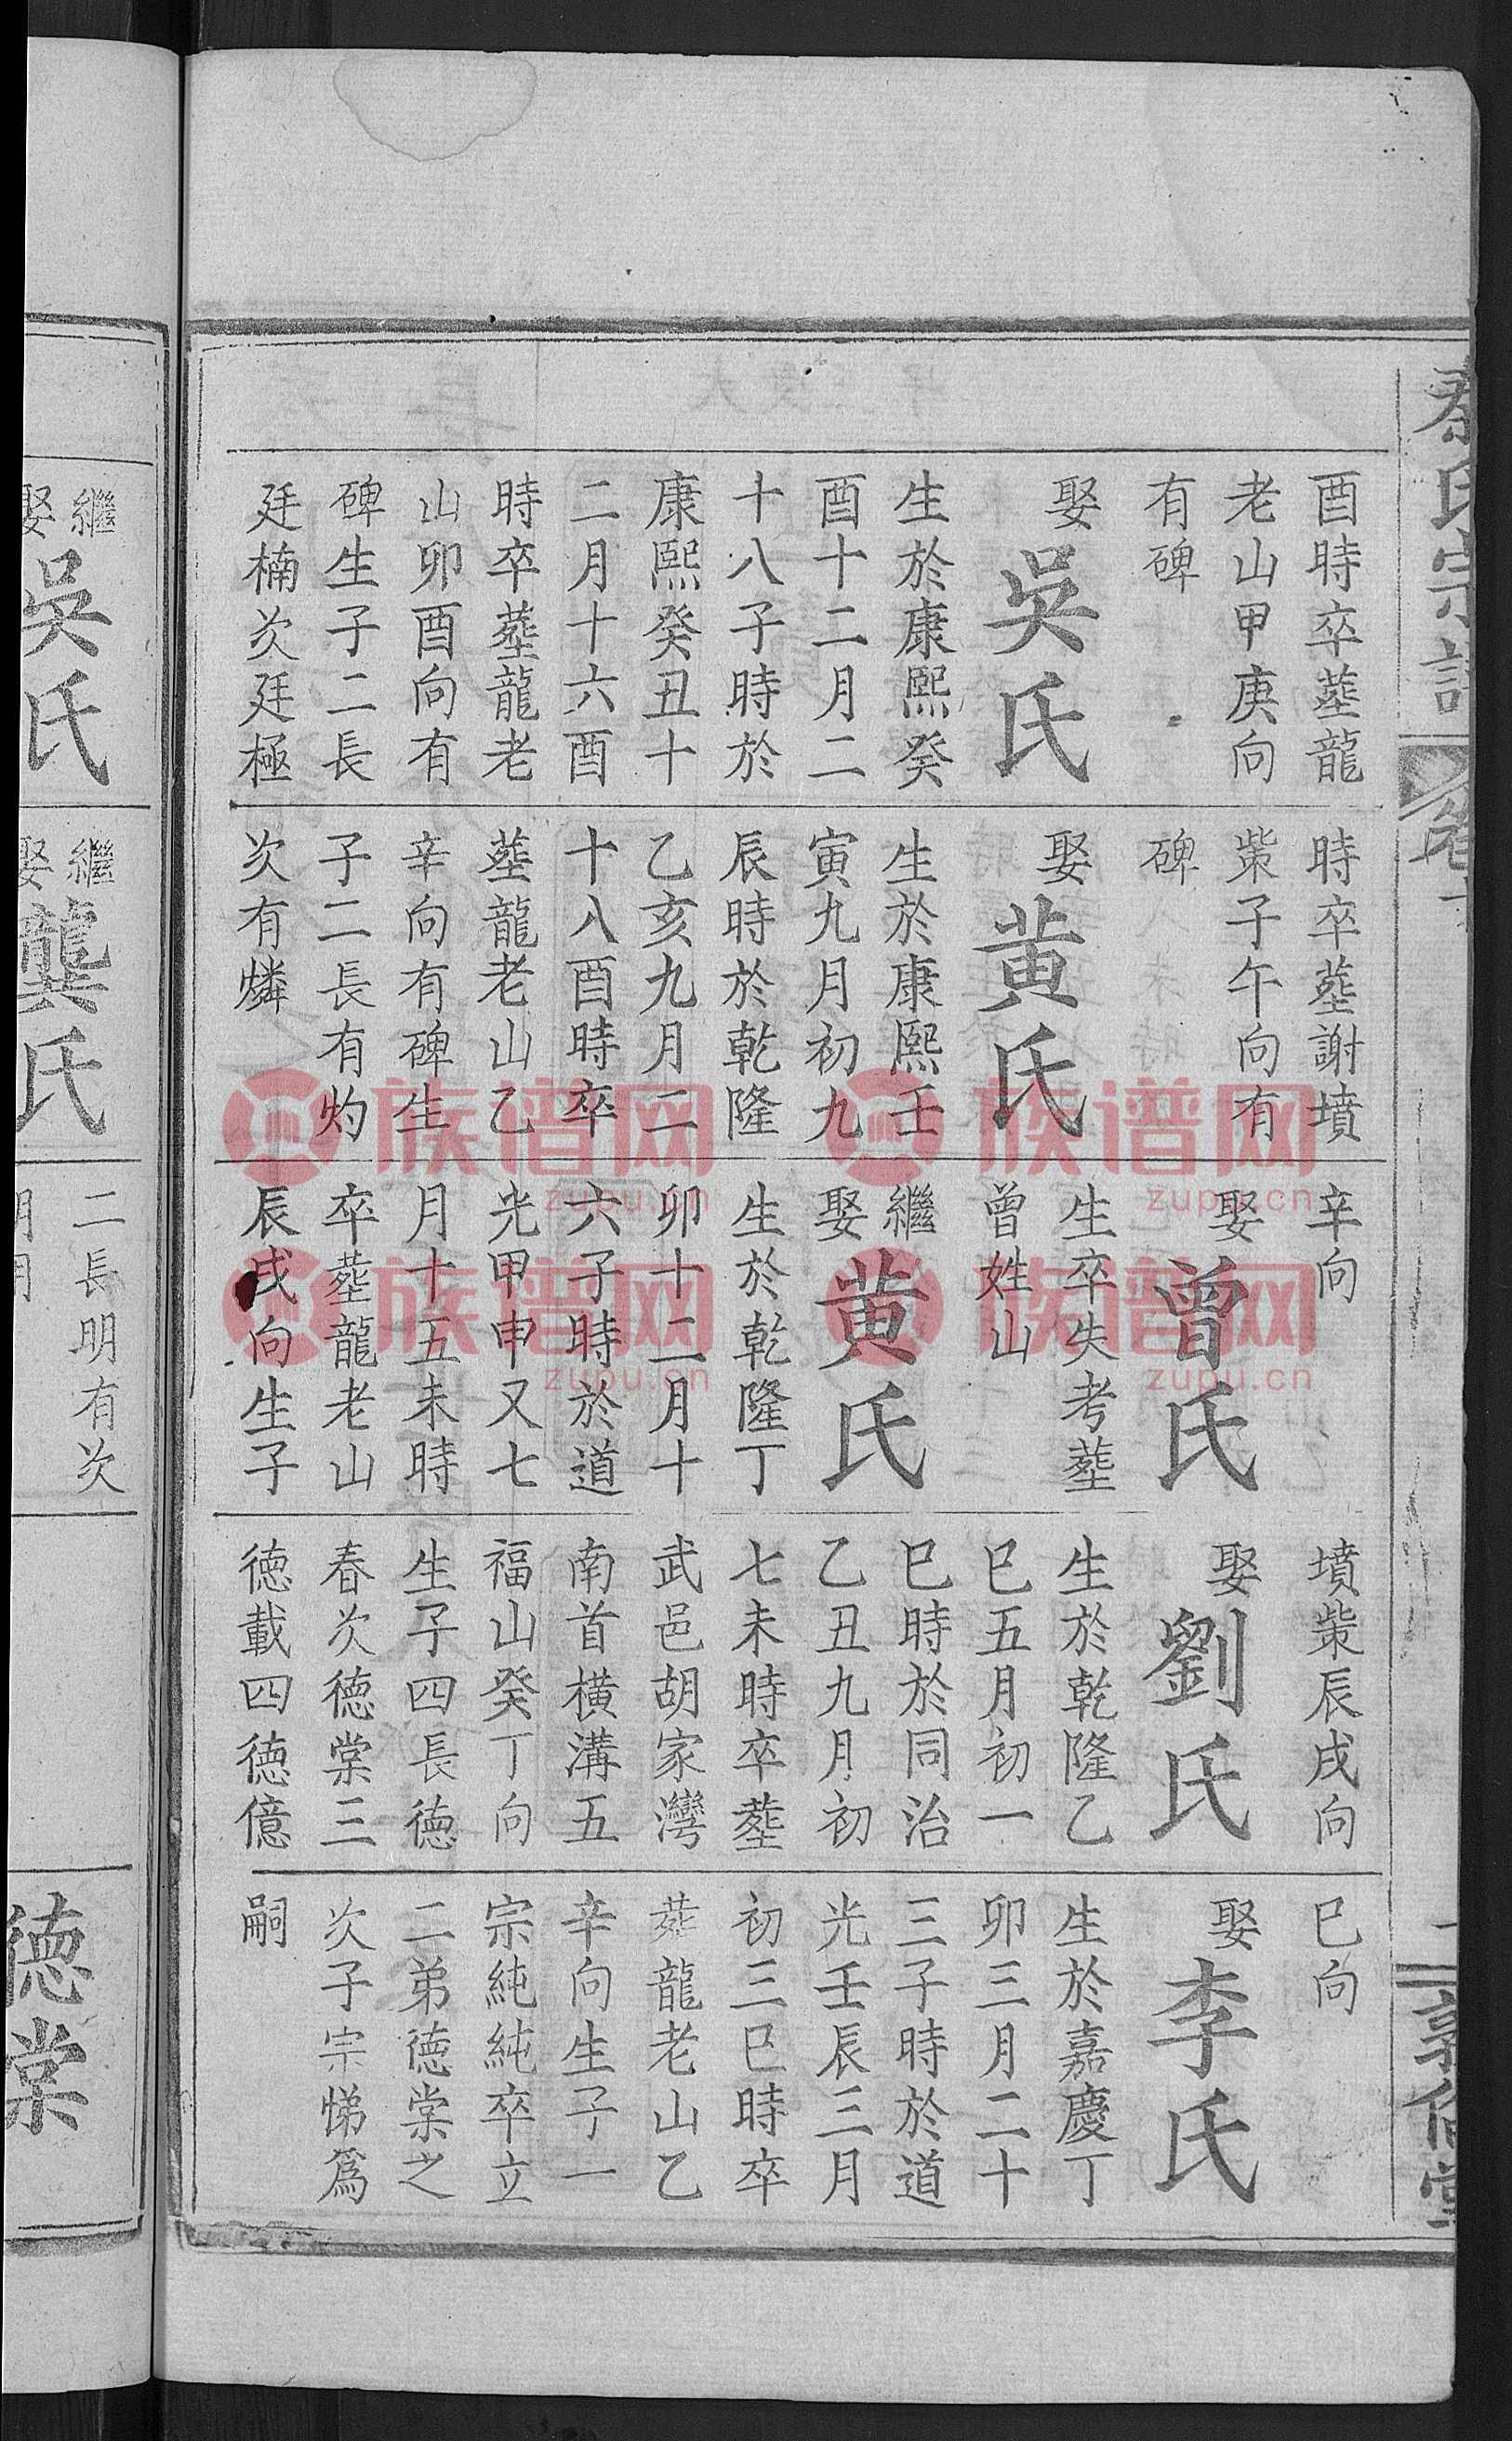 氏宗譜
卷
酉時卒塟龍
老山甲庚向
有碑
娶吳氏
生於康熙癸
酉十二月二
十八子時於
康熙癸丑十
二月十六酉
時卒塟龍老
山卯酉向有
碑生子二長
廷楠次廷極
時卒塟謝墳
祡子午向有
碑
娶黃氏
生於康熙壬
寅九月初九
辰時於乾隆
乙亥九月二
十八酉時卒
塟龍老山乙
辛向有碑生
子二長有灼
次有燐
辛向
娶曾氏
生卒失考塟
曾姓山
繼娶黃氏
生於乾隆丁
卯十二月十
六子時於道
光甲申又七
月十五未時
卒塟龍老山
辰戌向生子
墳祡辰戌向
娶劉氏
生於乾隆乙
巳五月初一
巳時於同治
乙丑九月初
七未時卒塟
武邑胡家灣
南首橫溝五
福山癸丁向
生子四長德
春次德棠三
德載四德億
巳向
娶李氏
生於嘉慶丁
卯三月二十
三子時於道
光壬辰三月
初三巳時卒
塟龍老山乙
辛向生子一
宗純純卒立
二弟德棠之
次子宗悌爲
嗣
繼娶吳氏
繼娶龔氏
二長明有次
德棠
族谱网
zupu.cn
族谱网
zupu.cn
族谱网
zupu.cn
族谱网
zupu.cn